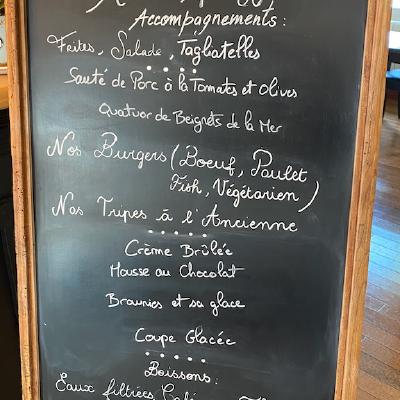 Accompagnements:
Frites, Salade, Tagliatelles
Sauté de Porc à la Tomates et Olives
Quatuor de Beignets de la Mer
Nos Burgers (Boeuf, Poulet
Fish, Végétarien)
Nos Tripes à l'Ancienne
Crème Brûlée
Mousse au Chocolat
Brownies et sa glace
Coupe Glacée
Boissons:
Eaux filtrées, Café